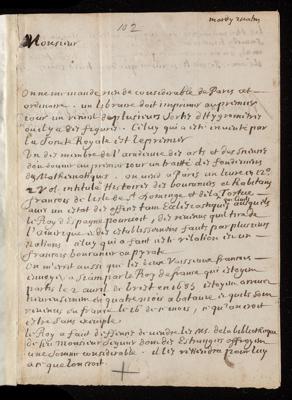 102
mardy
Monsieur
On ne me mande rien de considerable de Paris cet
ordinaire. un libraire doit imprimer au premier
jour un journal de plusieurs sortes d'Hygrometres
ou il y a des figures. Celuy qui a esté inventé par
la Société Royale est le premier.
Un des membres de l'académie des arts et des sciences
doit donner au premier jour un traité des fondemens
de Mathematiques. on vend a Paris un livre in 12°
2 vol. intitulé Histoires des boucaniers ou flibustiers
francois de l'isle de St Domingo et de la Tortue
avec un estat des offices tant Ecclesiastiques que
le Roy d'Espagne pourvoit, des revenus qu'il tire de
l'Amerique et des etablissemens faits par plusieurs
Nations. celuy qui a fait cette relation est un
francois boucanier ou pyrate.
On m'ecrit aussi que les deux Vaisseaux francois
envoyés a Siam par le Roy de france, qui estoyent
partis le 2 avril de brest en 1685 estoyent arrivés
heureusement en quatre mois a batavie et qu'ils sont
revenus en france le 26 de ce mois, ce qu'on croit
estre sans exemple.
Le Roy a fait deffense de vendre les Ms. de la bibliotheque
de feu Monsieur Seguier dont des Estrangers offroyent
une somme considerable. il les retiendra pour luy
a ce que l'on croit.